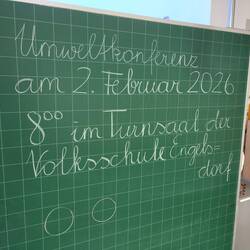 Umweltkonferenz
am 2. Februar 2026
8⁰⁰ im Turnsaal der
Volksschule Engels=
dorf